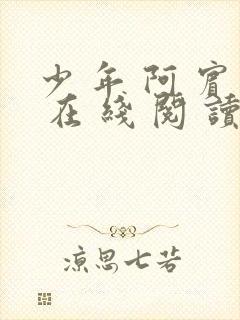 少年阿賓
在綫閱讀
凉思七若